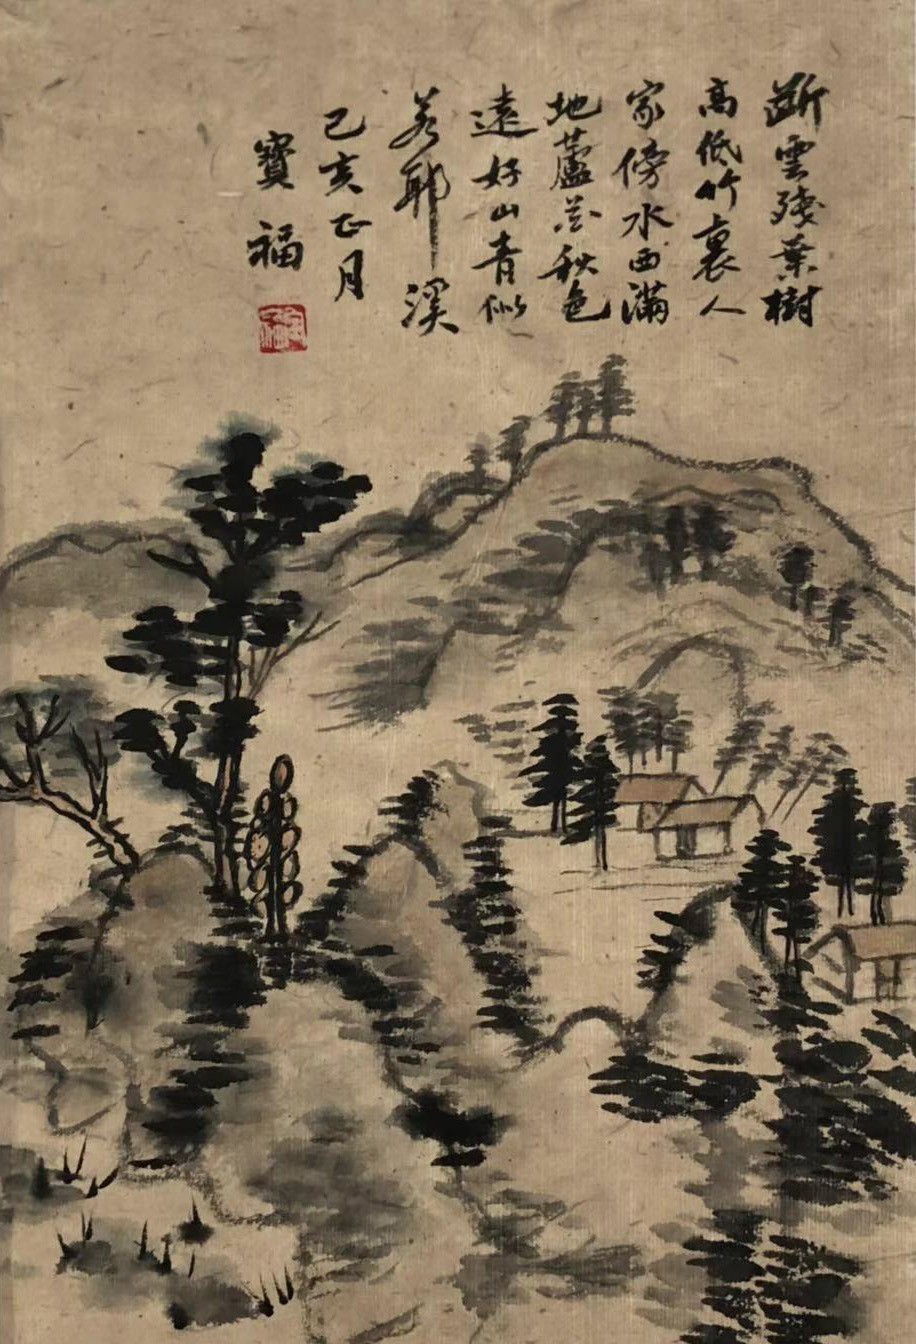 斷雲殘葉樹
高低竹裏人
家傍水西滿
地蘆花秋色
遠好山青似
若耶溪
己亥正月
寶福